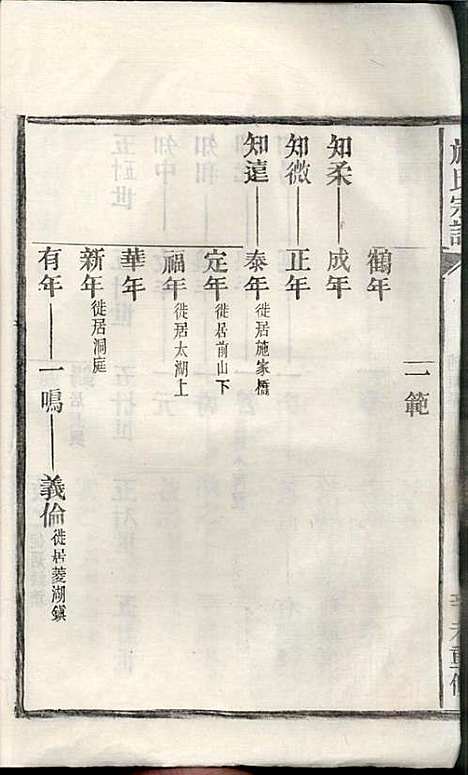 施氏宗譜
鶴年
二範
知柔 成年
知微 正年
知遠 泰年 徙居施家橋
定年 徙居前山下
福年 徙居太湖上
華年
新年 徙居洞庭
有年 一鳴 義倫 徙居菱湖鎮
重修